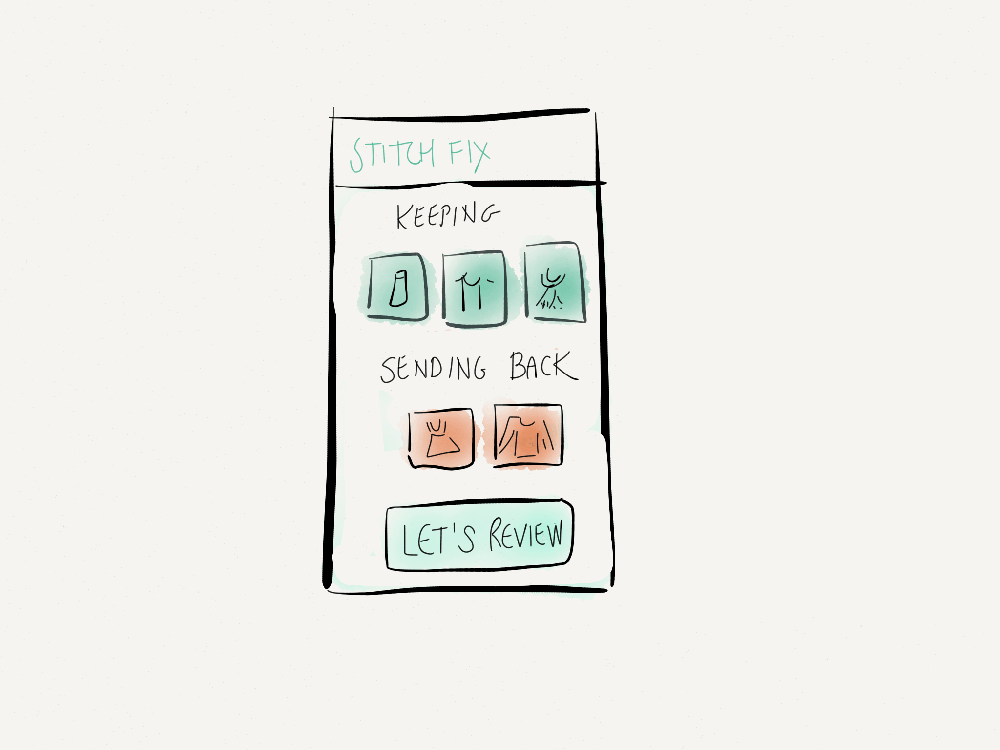 STITCH FIX
KEEPING
SENDING BACK
LET'S REVIEW